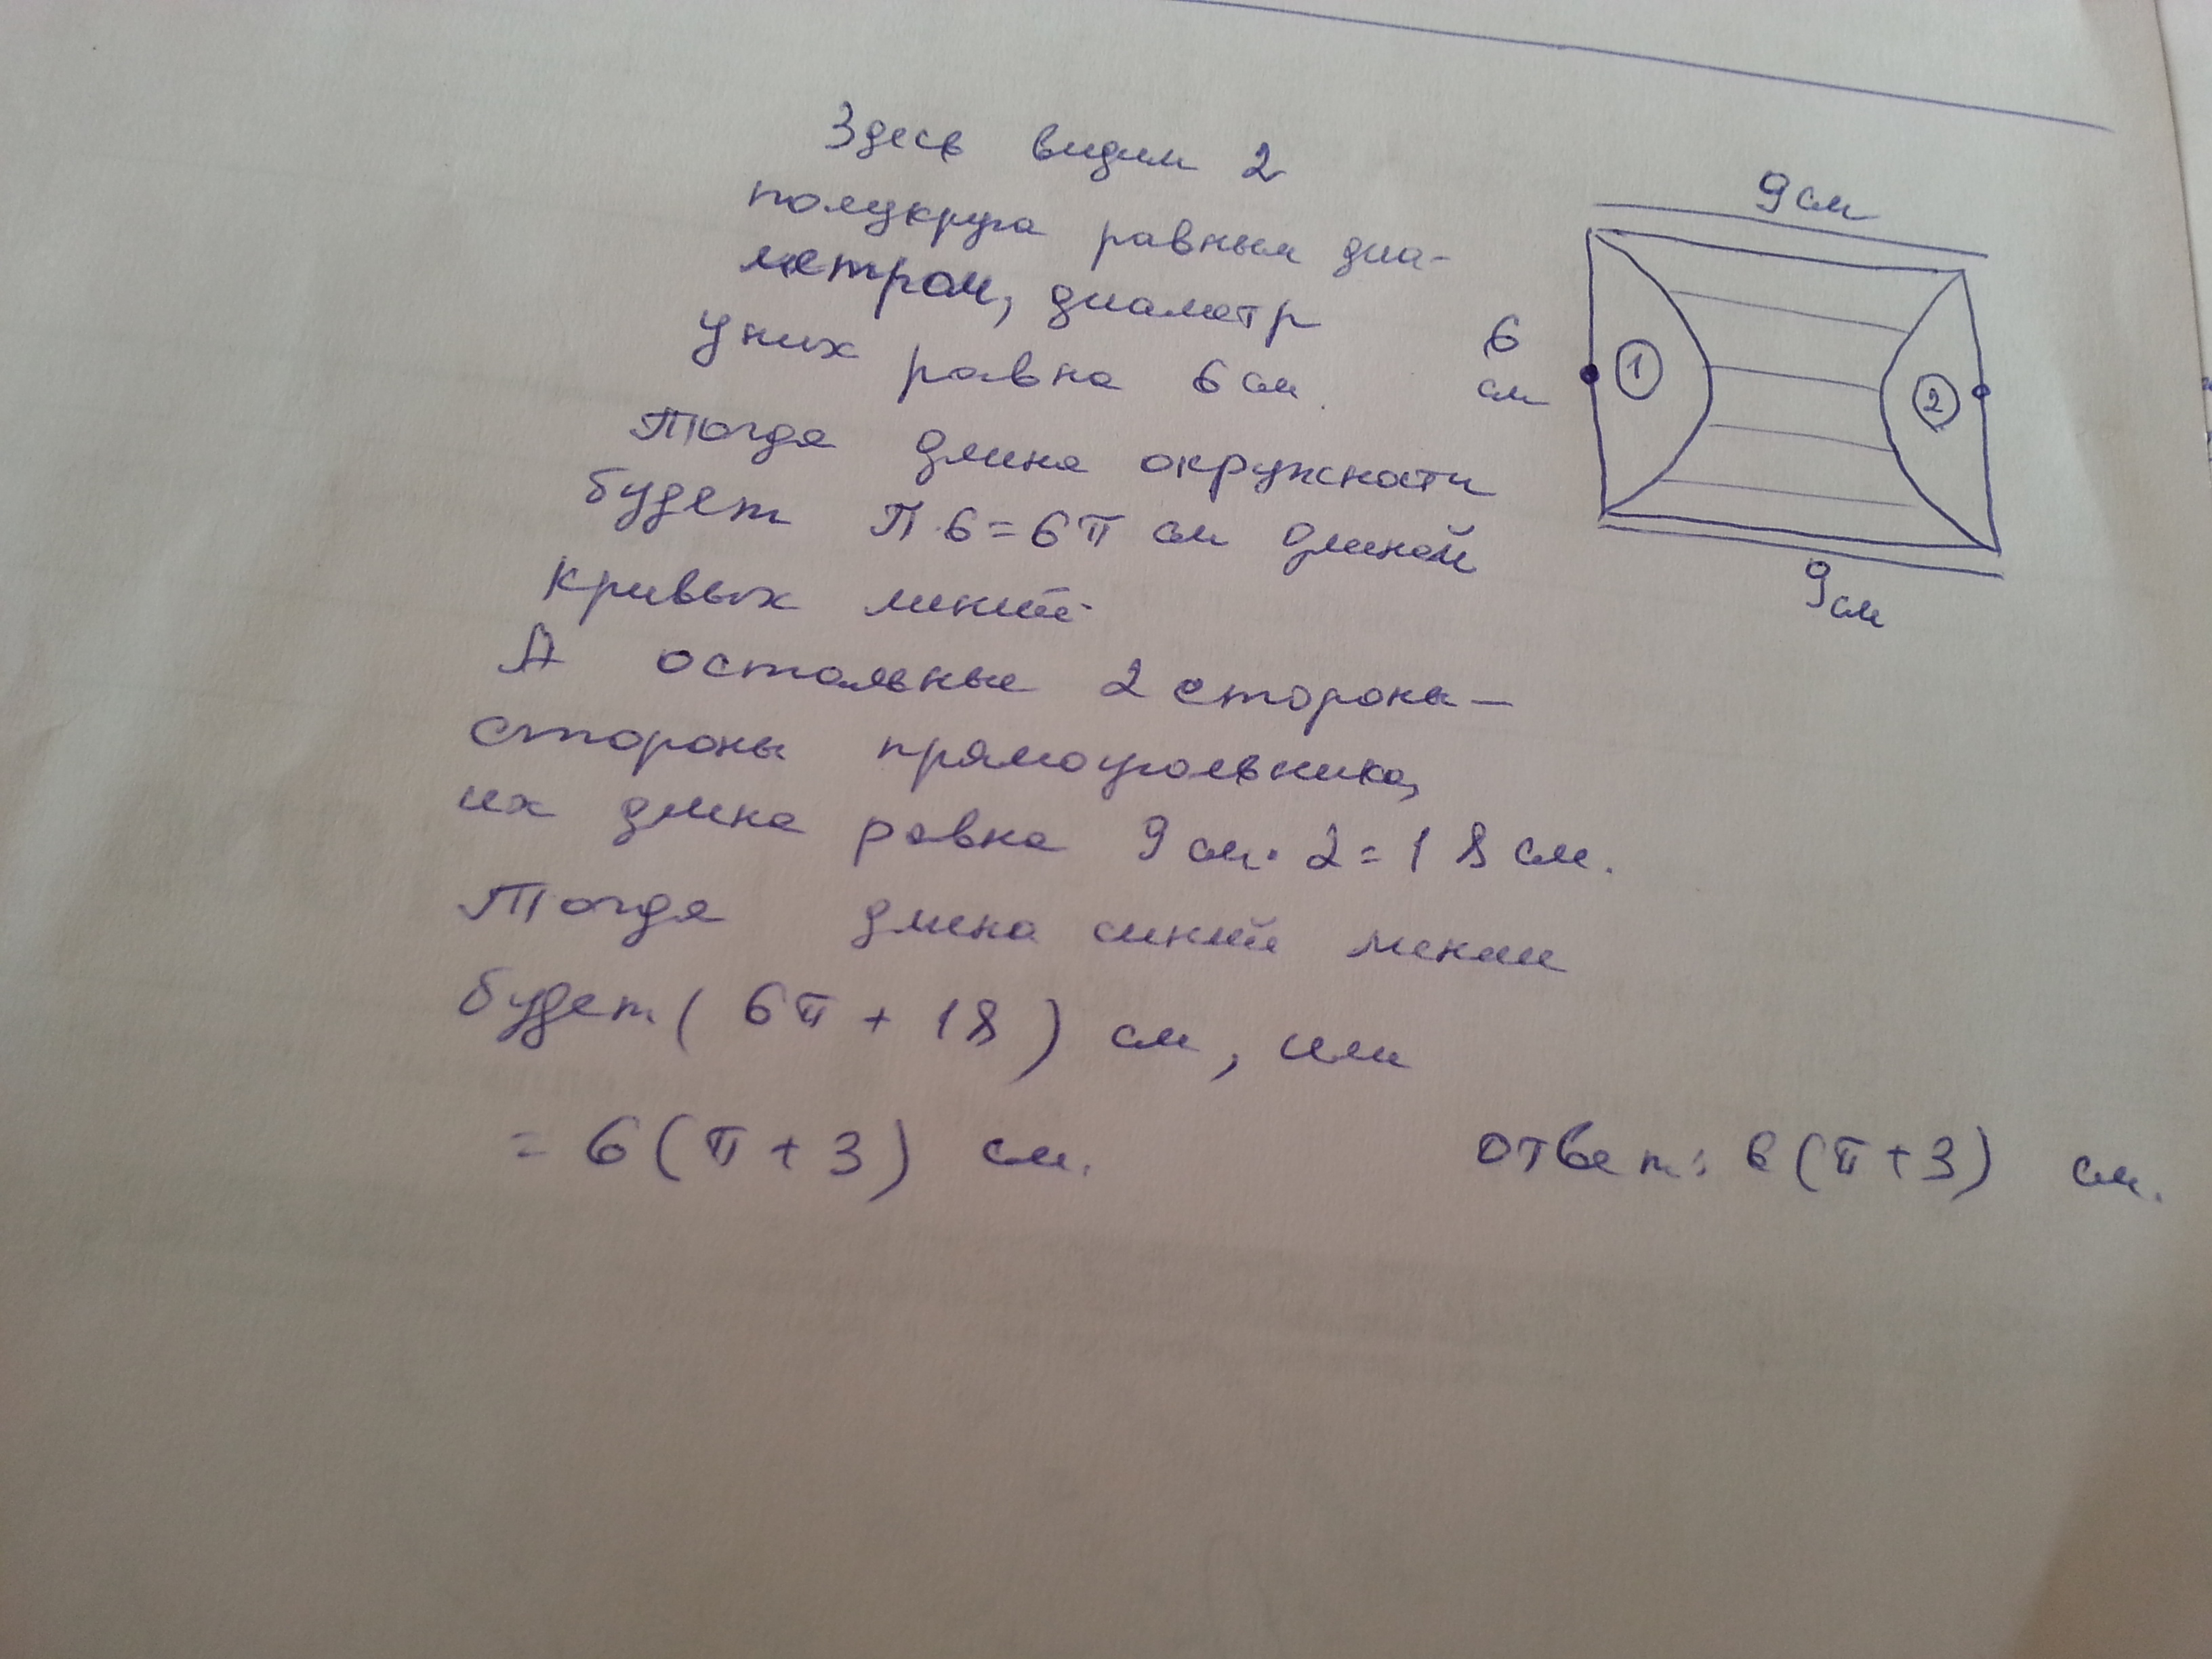 Здесь видим 2
полукруга равным диа-
метром, диаметр
у них равна 6 см.
Тогда длина окружности
будет π·6=6π см длиной
кривых линий.
А остальные 2 стороны –
стороны прямоугольника,
их длина равна 9 см·2=18 см.
Тогда длина синий линии
будет (6π+18) см, или
=6(π+3) см.
ответ: 6(π+3) см.
9 см
6
см
1
2
9 см